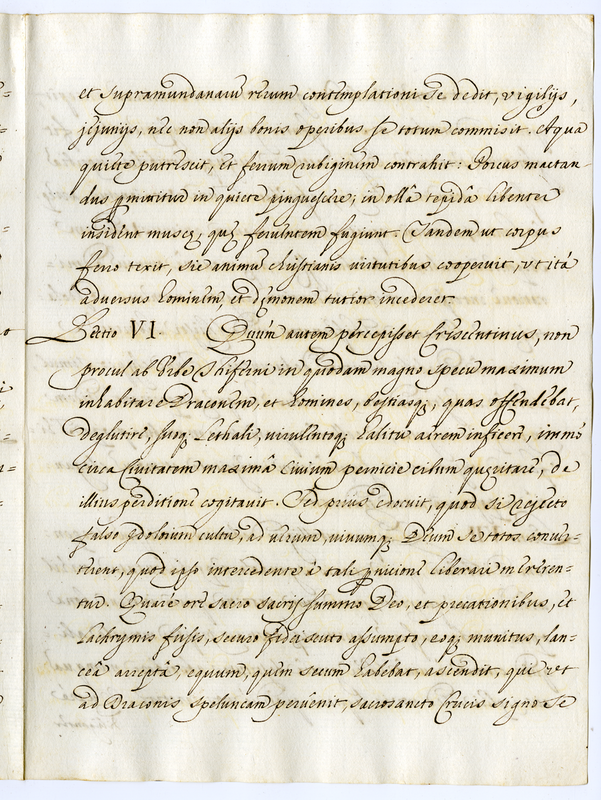 et supramundanarũ rerum contẽplationi se dedit, vigilijs,
jejunijs, nec non alijs bonis operibus se totum commisit. Aqua
quiete putrescit, et ferrum rubiginem contrahit: Porcus mactan-
dus pmittitur in quiete pinguescere; in ollâ tepidâ libenter
insident muscę, quę ferventem fugiunt. Tandem ut corpus
ferro texit, sic animũ christianis virtutibus cooperuit, ut itá
adversus hominem, et dęmonem tutior incederet.
Lectio VI. Quum autem percepisset Crescentinus, non
procul ab Urbe Thiferni in quodam magno specu maximum
inhabitare Draconem, et homines, bestiasq; quas offendebat,
deglutire, suoq; Lethali, virulentoq; halitu aerem inficere, immò
circa Civitatem maximâ civium pernicie cibum quęritare, de
illius perditione cogitavit. Sed prius edocuit, quod si rejecto
falso Idolorum cultu, ad verum, vivumq; Deum se totos conver-
terent, quod ipso intercedente â tale pnicione liberari mererẽn-
tur. Quare ore sacro sacris summo Deo, et precationibus, et
Lachrymis fusis, securo fidei scuto assumpto, eoq; munitus, lan-
ceâ arreptâ, equum, quem secum habebat, ascendit, qui vt
ad Draconis speluncam pervenit, sacrosancto Crucis signo se